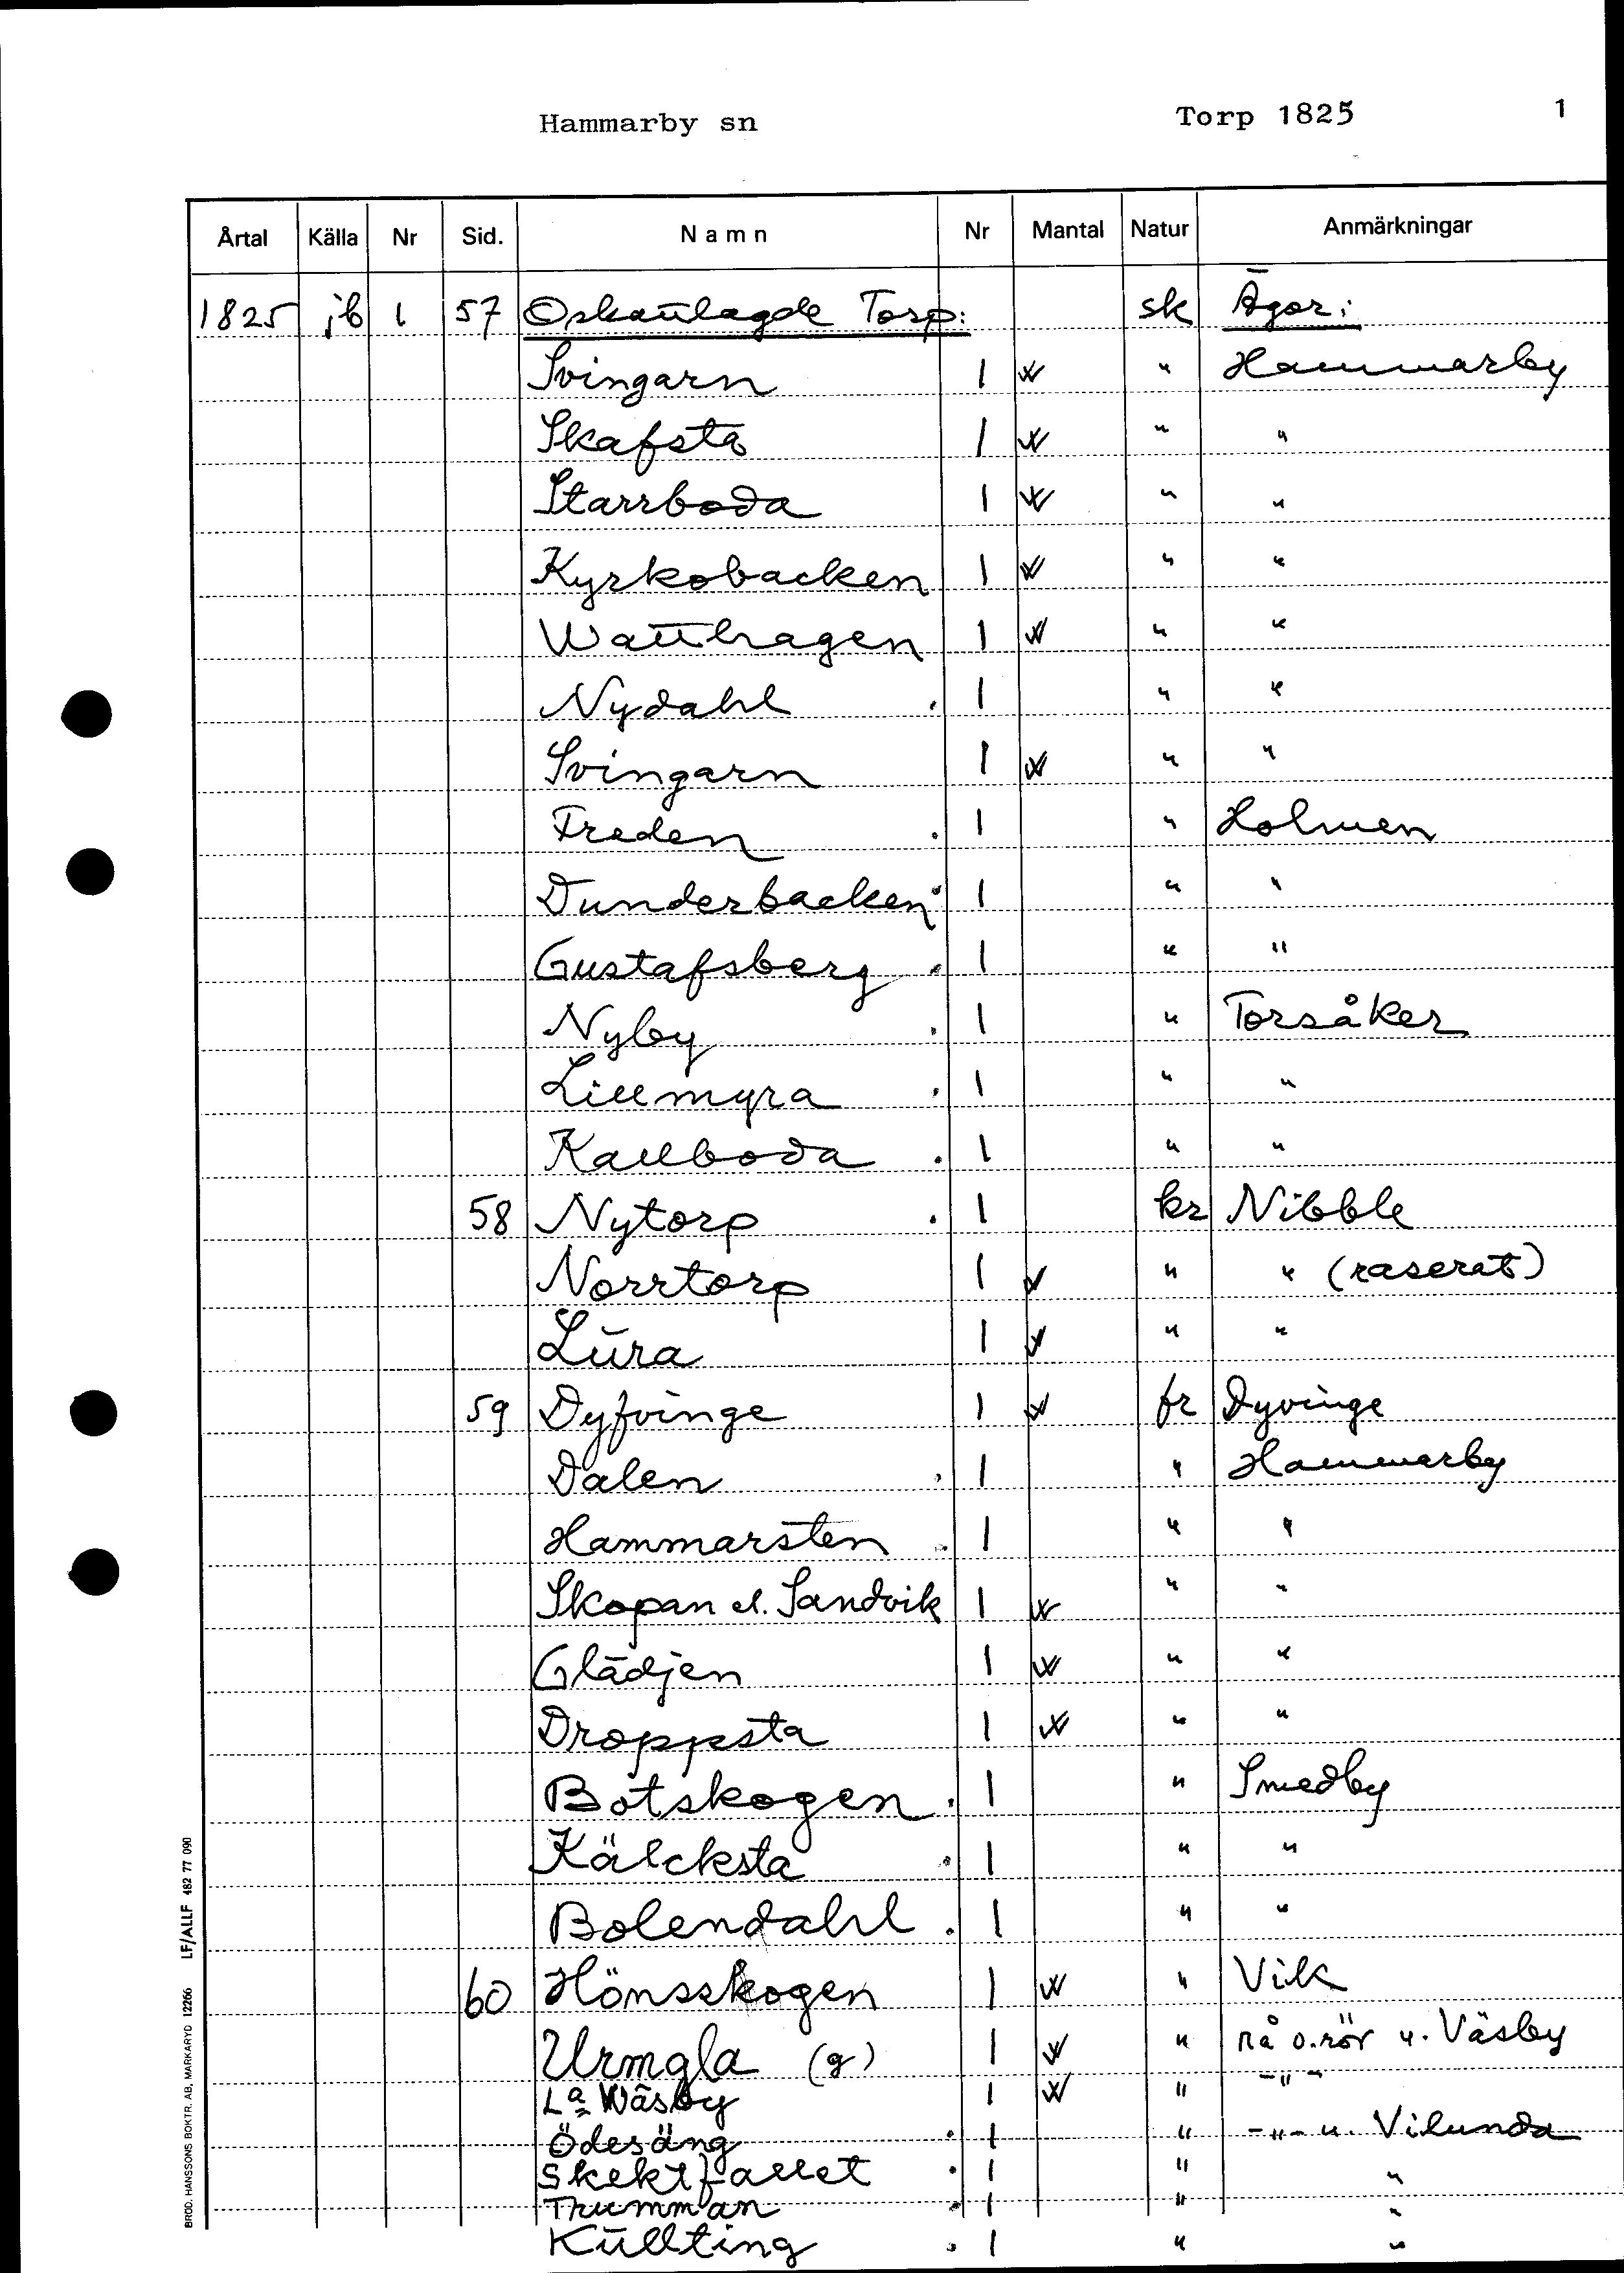 Hammarby sn Torp 1825 1
Årtal Källa Nr Sid. Namn Nr Mantal Natur Anmärkningar
1825 jb 1 57 Oskattlagde Torp: sk Ägor:
Svingarn 1 W " Hammarby
Skafsta 1 W " "
Starrboda 1 W " "
Kyrkobacken 1 W " "
Watthagen 1 W " "
Nydahl . 1 " "
Svingarn 1 W " "
Freden . 1 " Holmen
Dunderbacken . 1 " "
Gustafsberg . 1 " "
Nyby . 1 " Torsåker
Lillmyra . 1 " "
Kallboda . 1 " "
58 Nytorp . 1 kr Nibble
Norrtorp 1 W " " (raserat)
Lura 1 W " "
59 Dyfvinge 1 W fr Dyvinge
Dalen . 1 " Hammarby
Hammarsten . 1 " "
Skopan el. Sandvik 1 W " "
Glädjen 1 W " "
Droppsta 1 W " "
Botskogen . 1 " Smedby
Kälcksta . 1 " "
Bolendahl . 1 " "
60 Hönsskogen 1 W " Vik
Urmgla (g) 1 W " rå o. rör u. Väsby
La Wäsby 1 W " -"-
Ödesäng . 1 " -"- u. Vilunda
Skektfallet . 1 " "
Thumman . 1 " "
Kullting . 1 " "
BRÖD. HANSSONS BOKTR. AB, MARKARYD 12266 LF/ALLF 482 77 090